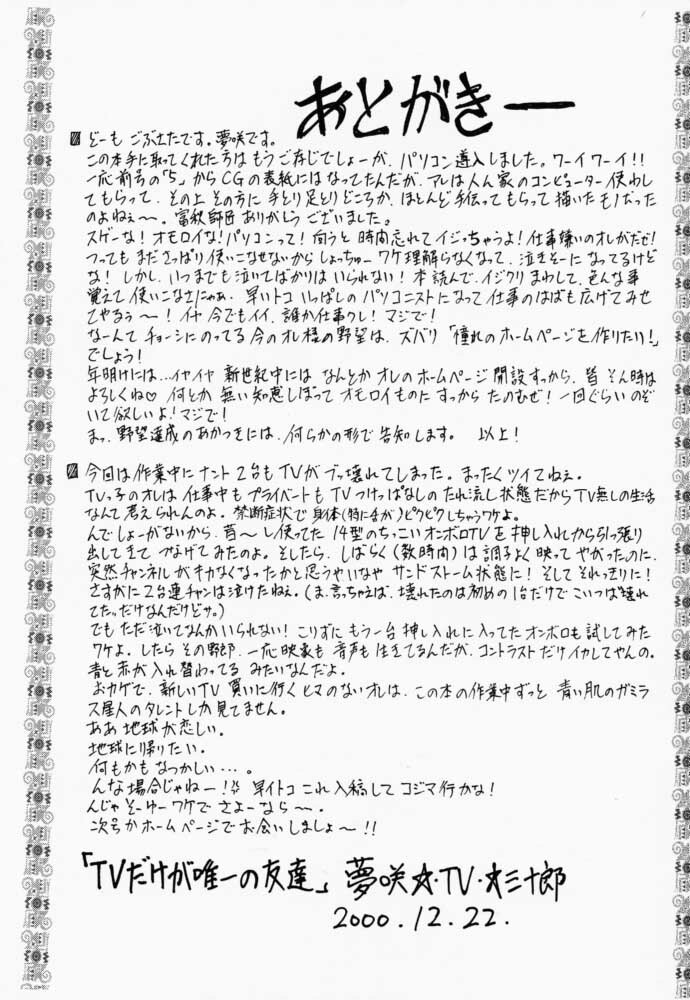 あとがきー
どーも ごぶさたです。夢咲です。
この本手に取ってくれた方は もうご存じでしょーが、パソコン導入しました。ワーイ ワーイ!!
一応前号の「5」からCGの表紙にはなってたんだが、アレは人ん家のコンピューター使わし
てもらって、その上 その方に 手とり足とりどころか、ほとんど手伝ってもらって描いたモノだった
のよねぇ〜。富秋師匠 ありがとう ございました。
スゲーな!オモロイな!パソコンって!向うと 時間忘れて イジっちゃうよ!仕事嫌いのオレがだぜ!
つっても まださっぱり 使いこなせないから しょっちゅー ワケ理解らなくなって、泣きそーになってるけど
な!しかし、いつまでも泣いてばかりは いられない!本読んで、イジクリまわして、色んな事
覚えて 使いこなさにゃぁ、早いトコ いっぱしの パソコニストになって 仕事のはばも広げてみせ
てやるぅ〜!イヤ 今でもイイ、誰か仕事クレ!マジで!
なーんて チョーシにのってる 今のオレ様の野望は、ズバリ「憧れのホームページを作りたい!」
でしょう!
年明けには…イヤイヤ 新世紀中には なんとか オレのホームページ 開設すっから、皆 そん時は
よろしくね♡ 何とか 無い知恵しぼって オモロイものに すっから たのむぜ!一回ぐらい のぞ
いて欲しいよ!マジで!
まっ、野望達成の あかつきには、何らかの形で 告知します。 以上!
今回は作業中に ナント 2台も TVが ブッ壊れてしまった。まったく ツイてねぇ。
TVっ子のオレは 仕事中も プライベートも TVつけっぱなしの たれ流し状態だから TV無しの生活
なんて 考えられんのよ。禁断症状で 身体(特に舌が)ピクピクしちゃうワケよ。
んでしょーがないから、昔〜し使ってた 14型のちっこいオンボロTVを 押し入れから引っ張り
出してきて つなげてみたのよ。そしたら、しばらく(数時間)は 調子よく映って やがったのに、
突然チャンネルがキカなくなったかと思うやいなや サンドストーム状態に!そして それっきりに!
さすがに 2台連チャンは泣けたねぇ。(ま、言っちゃえば、壊れたのは初めの1台だけで こいつは"壊れ
てた"だけなんだけどサ。)
でも ただ泣いてなんかいられない!こりずに もう一台 押し入れに入ってたオンボロも試してみた
ワケよ。したら その野郎、一応 映像も 音声も 生きてるんだが、コントラストだけイカレてやんの。
青と赤が入れ替わってる みたいなんだよ。
おカゲで、新しいTV 買いに行く ヒマのないオレは、この本の作業中ずっと 青い肌のガミラ
ス星人のタレントしか見てません。
ああ 地球が恋しい。
地球に帰りたい。
何もかも なつかしい…。
んな場合じゃねー!! 早イトコ これ入稿して コジマ行かな!
んじゃ そーゆーワケで さよーなら〜。
次号か ホームページで お会いしましょ〜!!
「TVだけが唯一の友達」夢咲☆・TV・☆三十郎
2000.12.22.